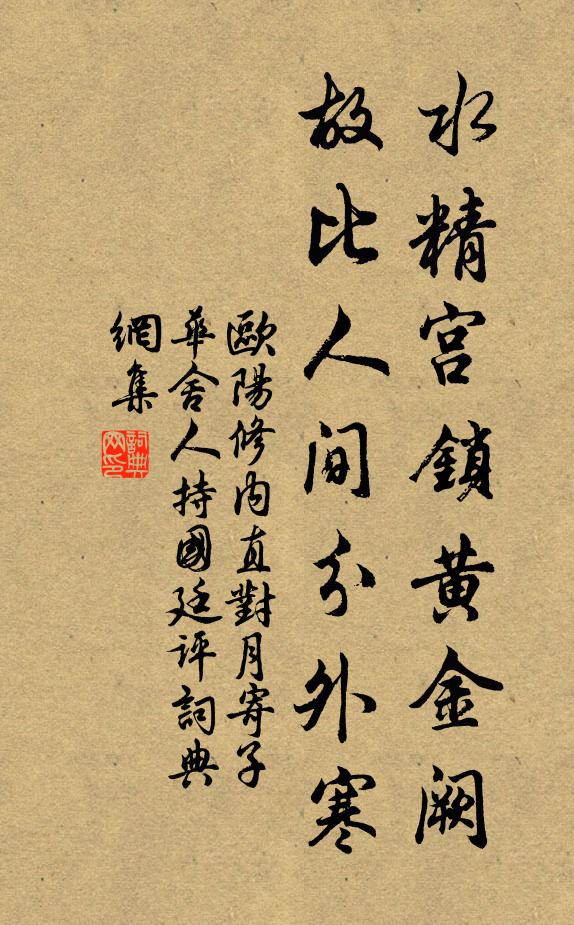 水精宮鎖黄金闕
故比人間分外寒
歐陽修內直對月寄子
華舍人持國廷評詞典
網集
詞典
网印